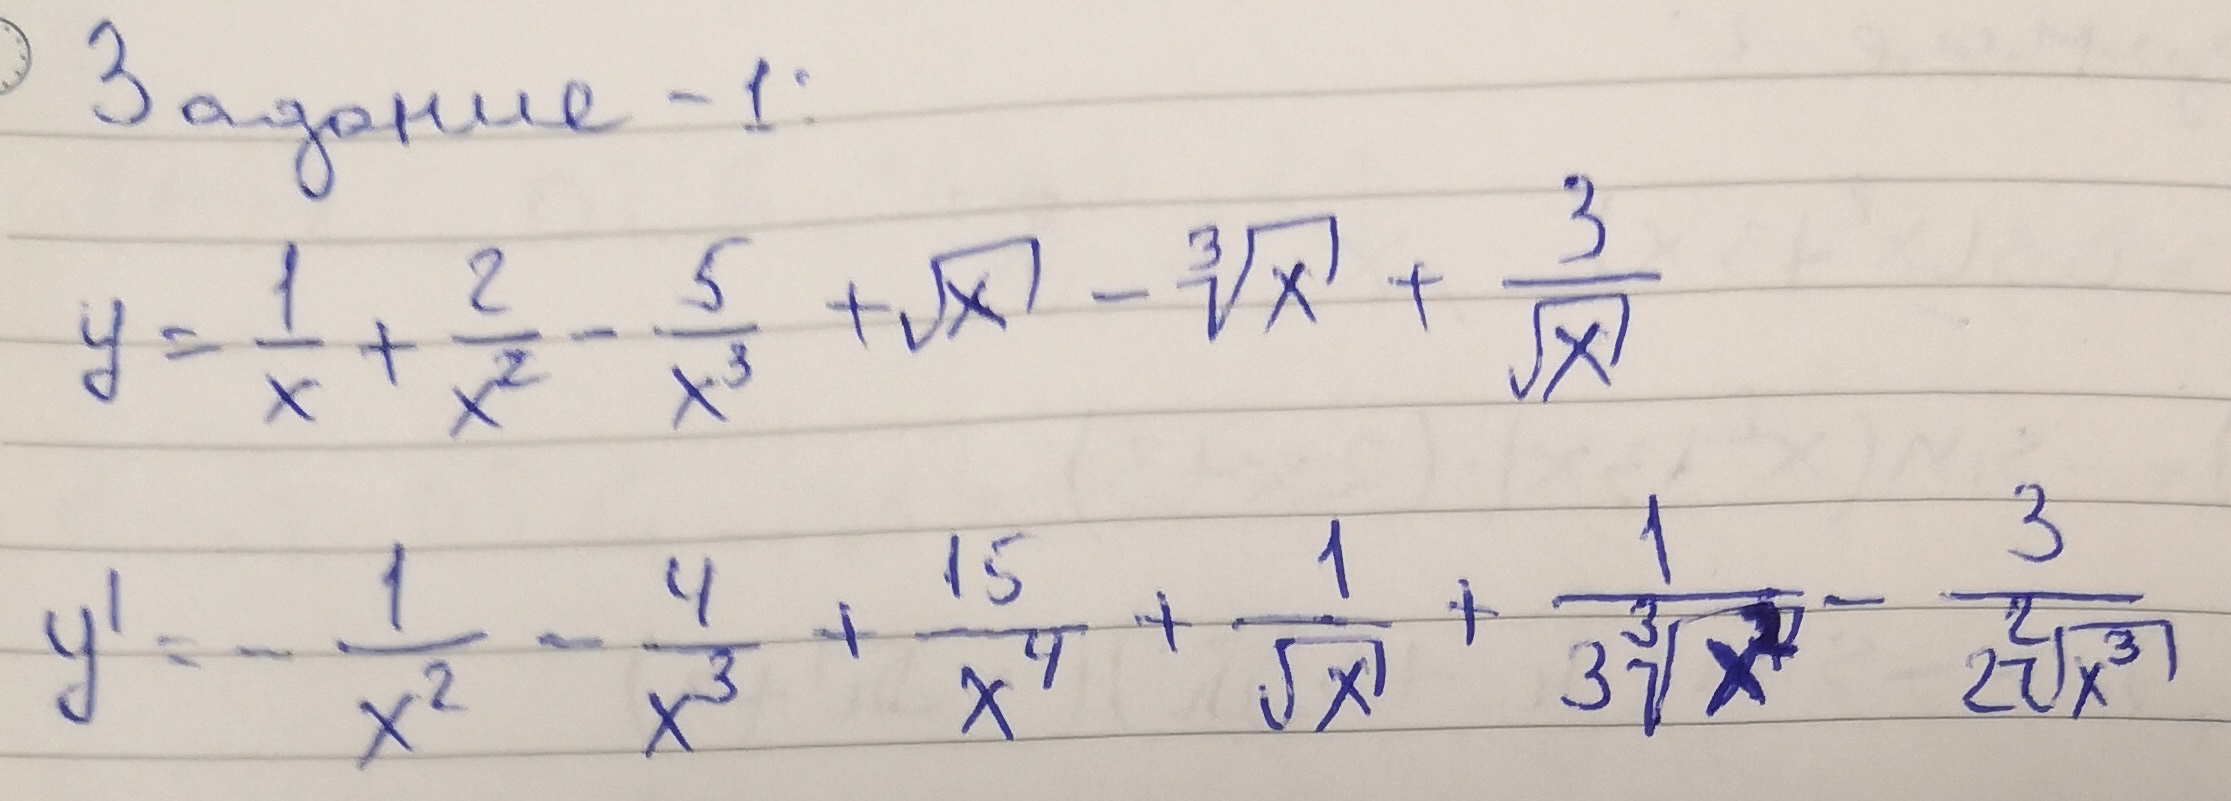 Задание - 1:
y = 1/x + 2/x² - 5/x³ + √x - ³√x + 3/√x
y' = - 1/x² - 4/x³ + 15/x⁴ + 1/√x + 1/(3³√x²) - 3/(2²√x³)